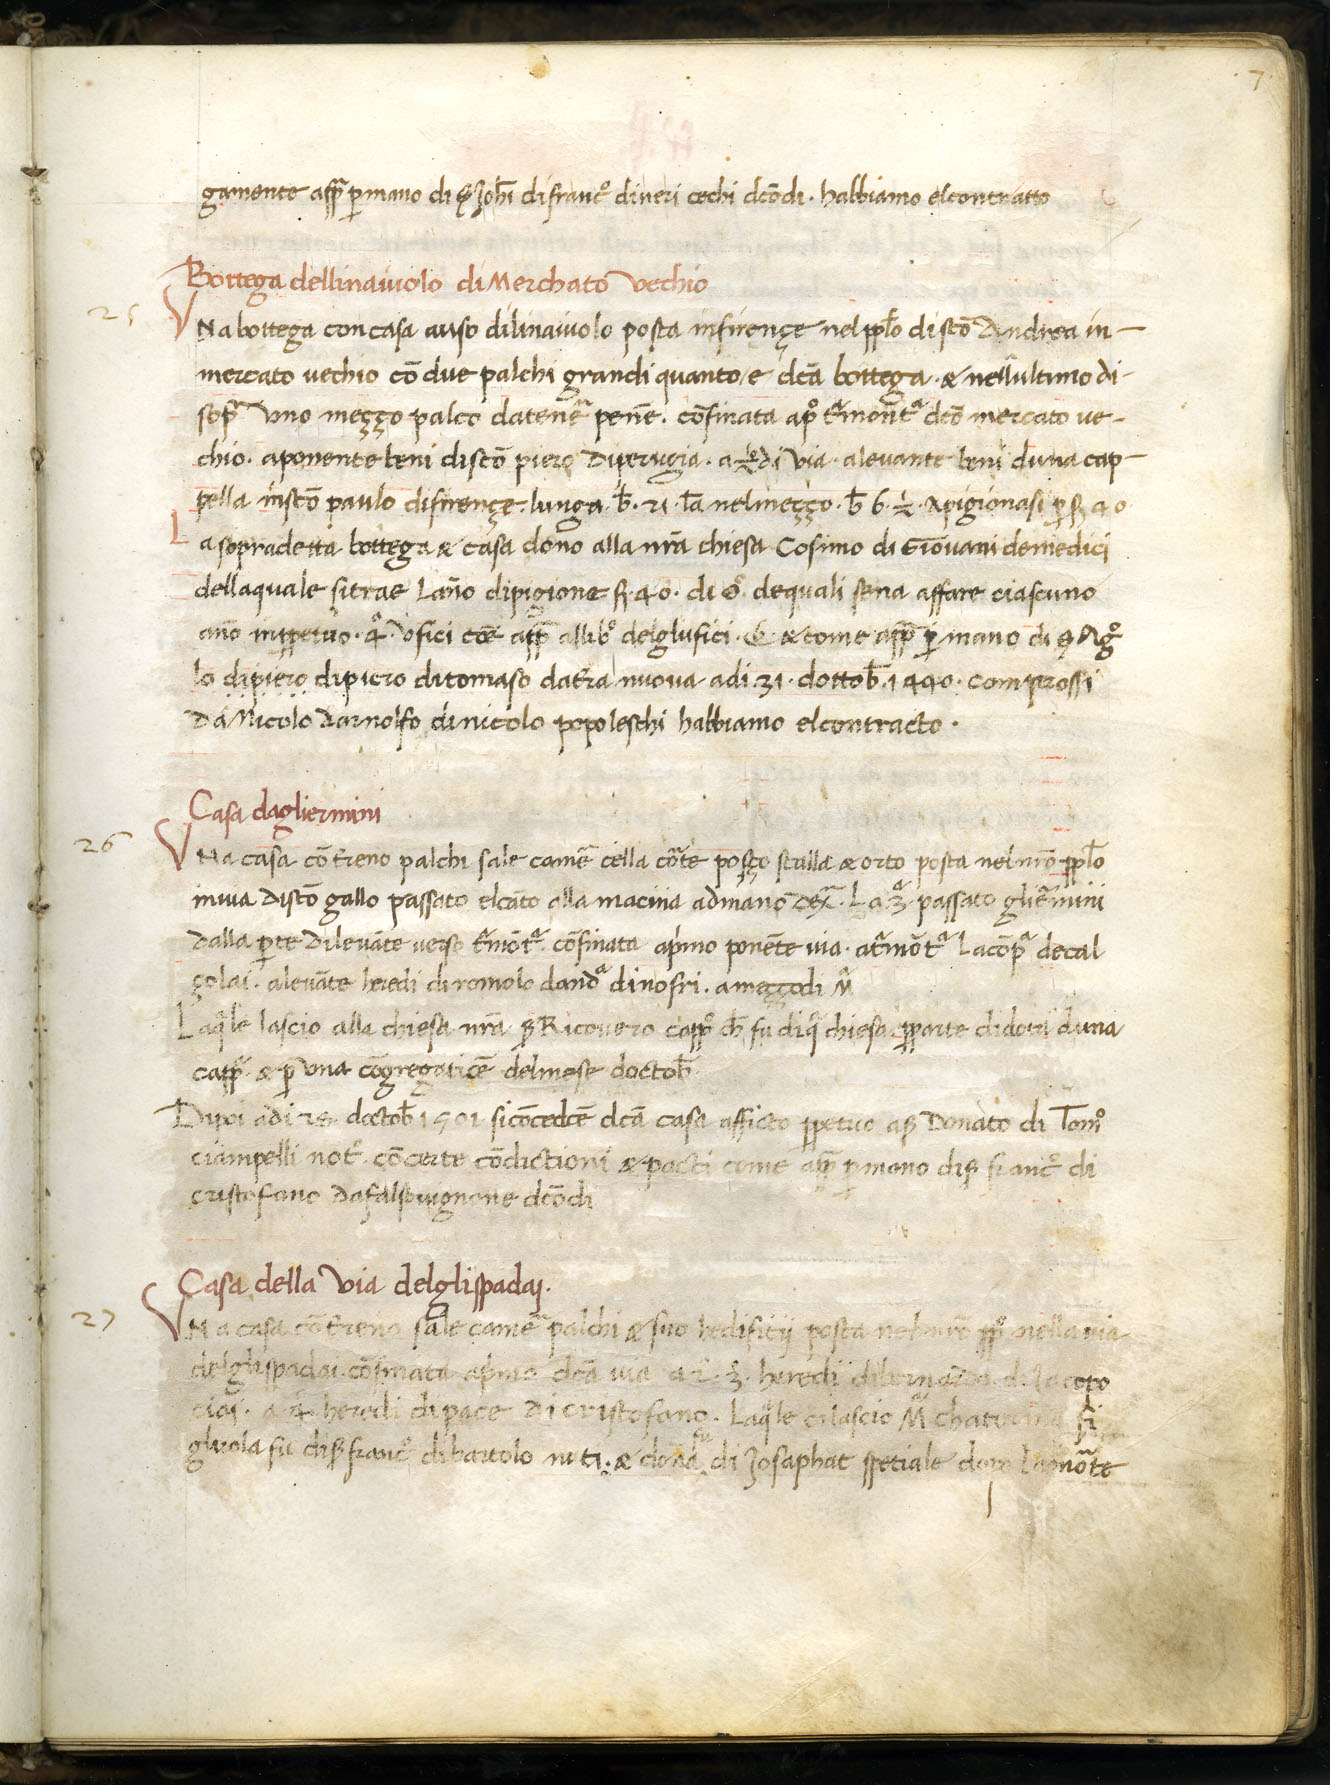 7
gamente app̄ p mano di S Joh̄i di franc° di neri cechi dcōdi · habbiamo el contratto
Bottega dellinaiuolo di Merchato Vechio
25
VNa bottega con casa auso di linaiuolo posta infirençe nel pplo di scō Andrea in
mercato vechio cō due palchi grandi quanto e dcā bottega · & nellultimo di
sopra uno meççо palco da tenere penne · cōfinata a po tramontā dcō mercato ve
chio · a ponente beni di scō piero Diperugia · a di via · a levante beni duna cap
pella in scō paulo di firençe · lunga · b · 21 · la nel meççо · b 6 ½ · Apigionasi p f 40
La sopradetta bottega & casa dono alla nrā chiesa Cosimo di Giovani demedici
dellaquale si trae Lāno di pigione f · 40 · di · dequali sena affare ciascuno
año in ppetuo · 4 · Vfici cōe app̄ al lib° delgluffici · G & come app̄ p mano di S Ag°
lo di piero di piero di tomaso da tra nuova adi · 31 · dottob̄ · 1440 · comprossi
Da Nicolo Darnolfo di nicolo popoleschi habbiamo el contracto ·
Casa dagliermini
26
VNa casa cō treno palchi sale camē cella cōte poço stalla & orto posta nel nrō pplo
in via di scō gallo passato el cāto alla macina admano dex · La 3ª passato gliermini
dalla pte di levāte verso tramōtā · cōfinata a pmo ponēte via · a tramōtā La cōpā de cal
çolai · a levāte heredi di romolo dandª dinofri · a meççodi M
Laqle lascio alla chiesa nrā S Ricovero capp° ch fu di q chiesa pparte di dota duna
capp̄ & p una cōgregatiōe del mese doctob̄
Dipoi adi 25 doctob̄ 1501 si cōcedecte dcā casa afficto ppetuo a S Donato di Tom°
ciampelli not° · cōcerte cōdictioni & pacti come app̄ p mano di S franc° di
cristofano Dafalsovignone dcōdi
Casa della Via delglispadai ·
27
VNa casa cō treno sale camē palchi & suo hedifitij posta nel nrō pp° nella via
delglispadai · cōfinata a pmo dcā via a 2 · 3 · heredi di bernardo di Jacopo
ciai · a 4 heredi di pace Di cristofano · Laqle ci lascio Mª chaterina fi
gliuola fu di S franc° di bartolo nuti · & dōna fu di Josaphat spetiale dopo la mōte